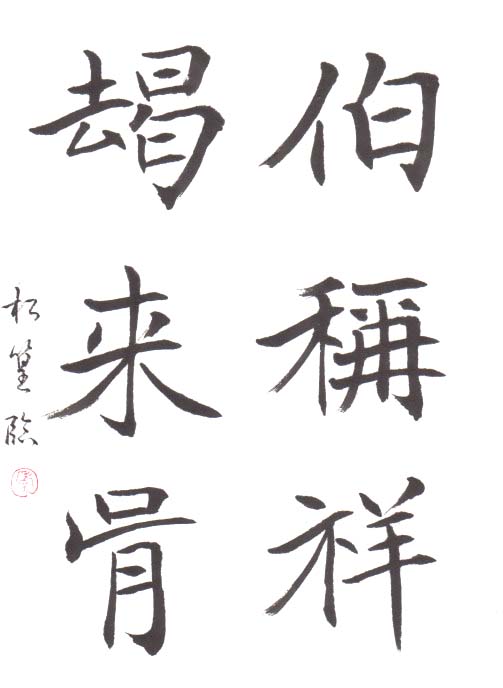 伯稱祥
朅来
松篁臨